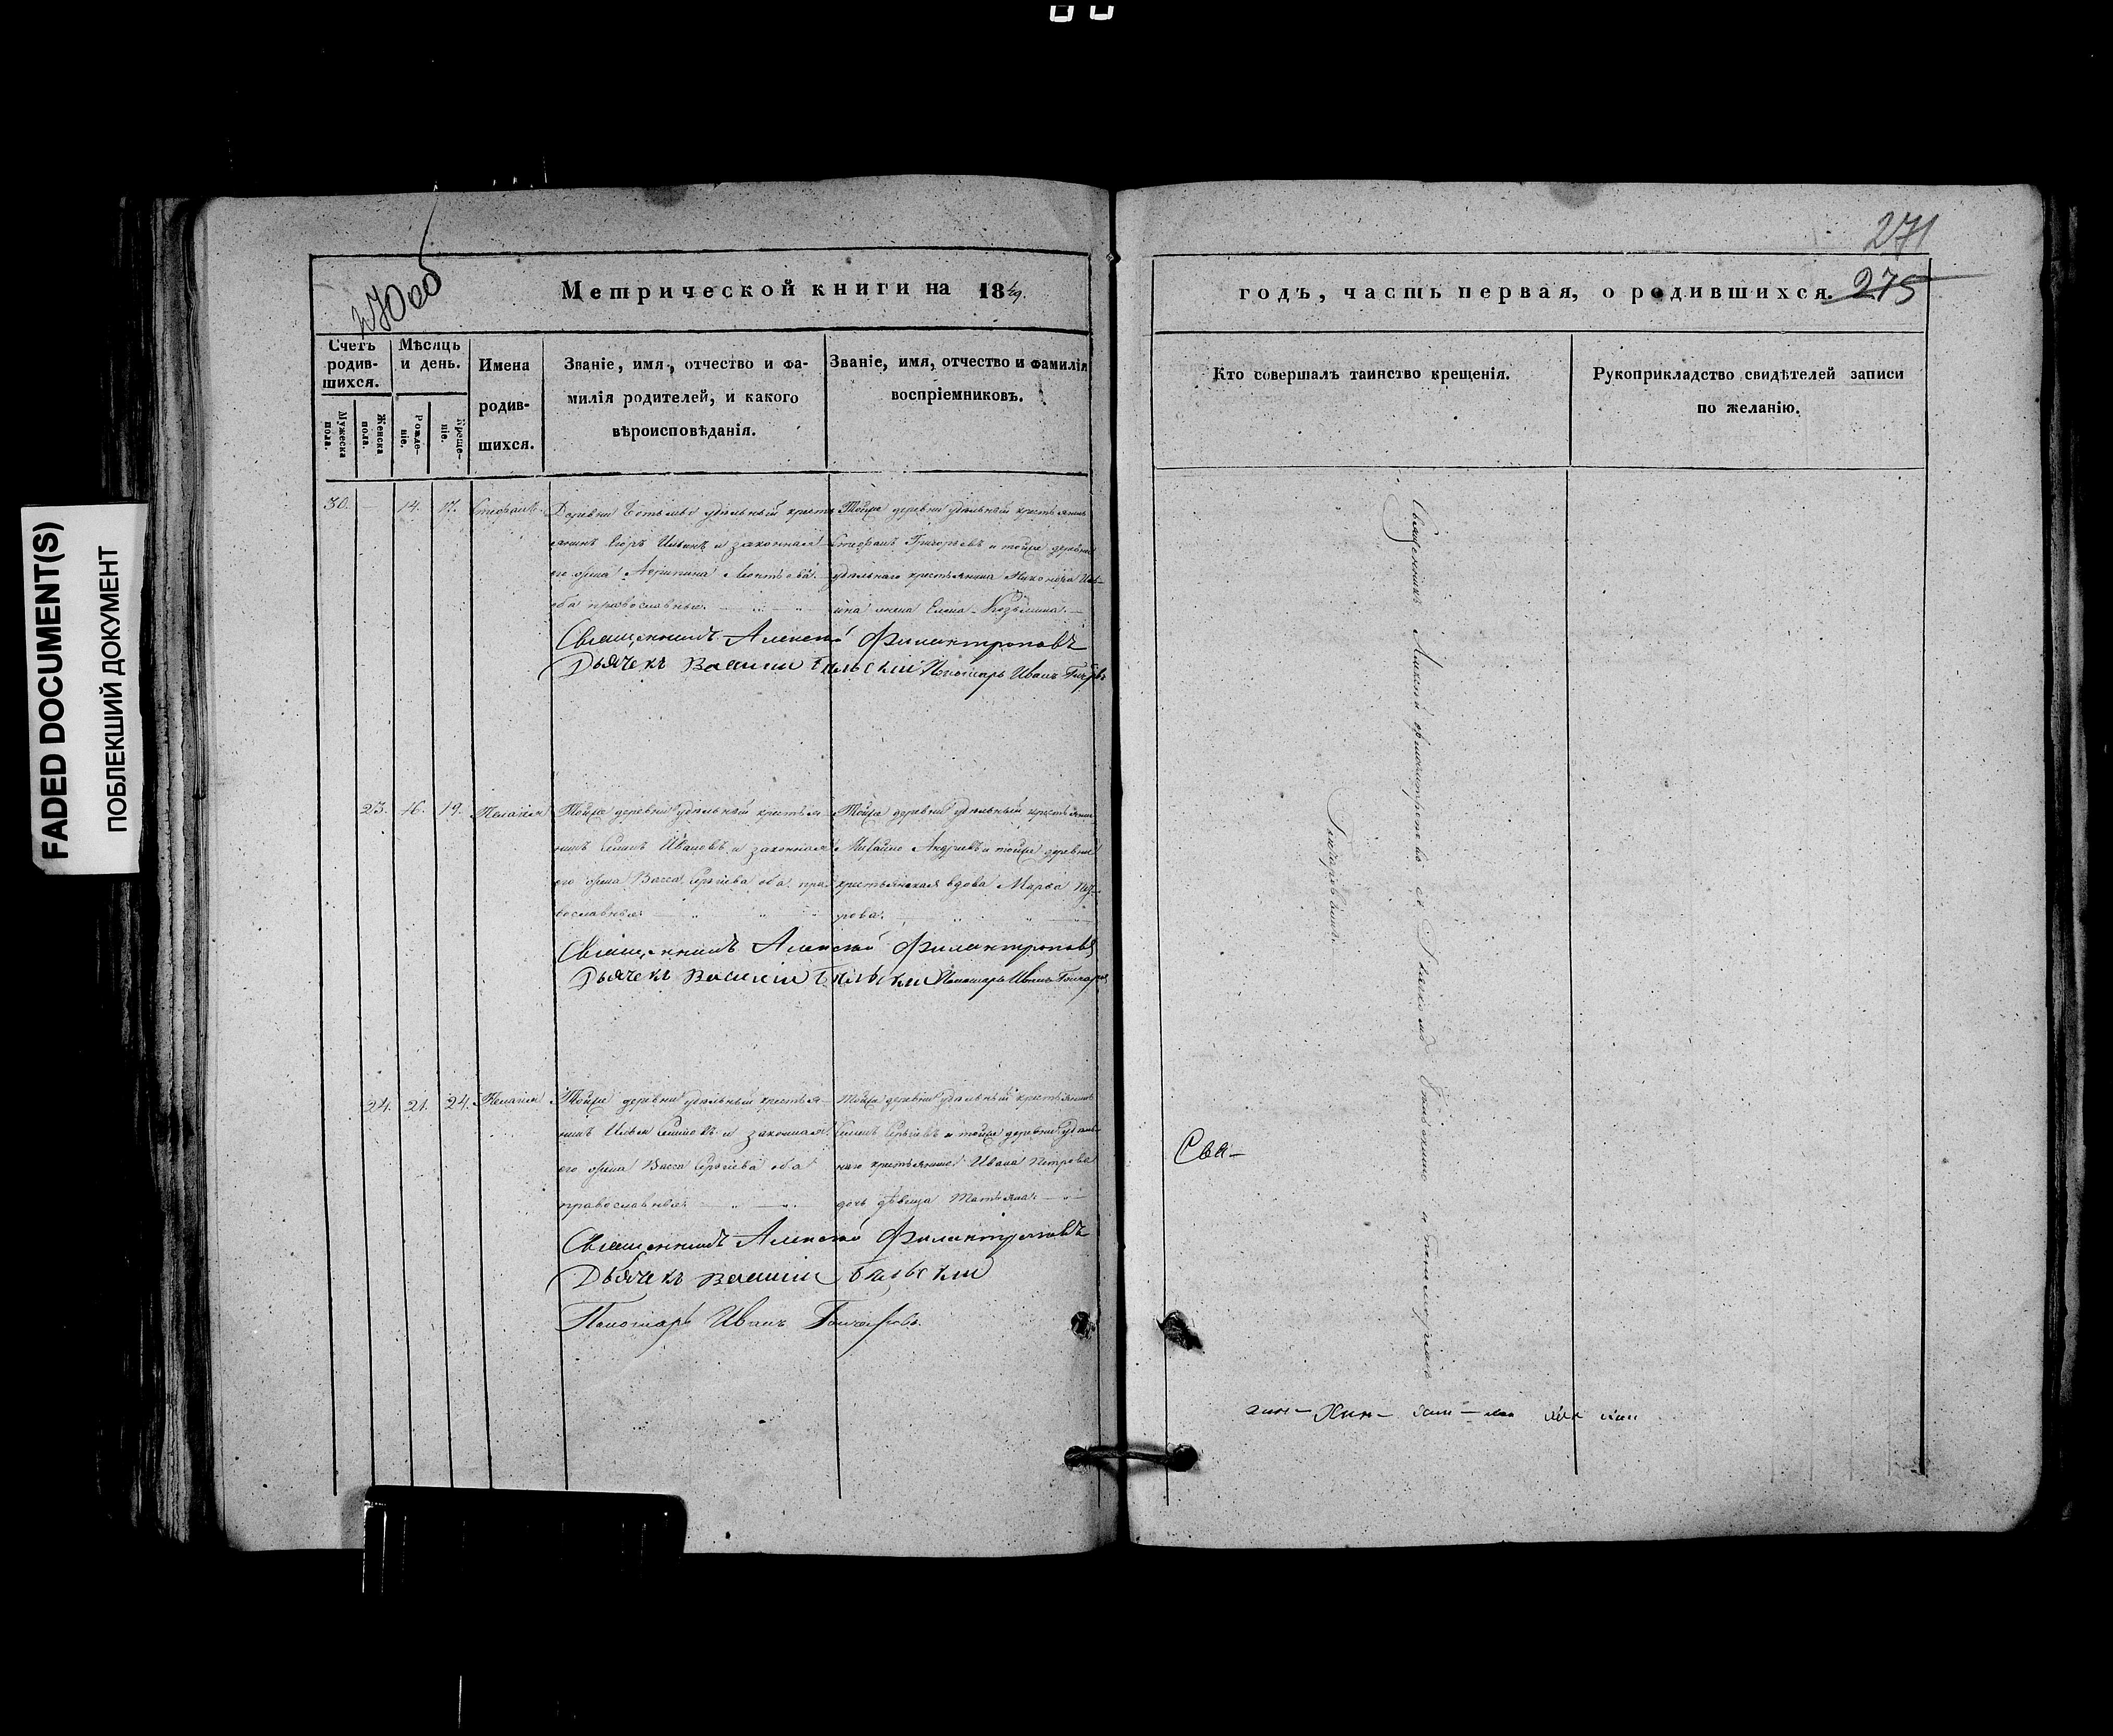 FADED DOCUMENT(S)
ПОБЛЕКШИЙ ДОКУМЕНТ
270об
Метрической книги на 1849.
Счетъ родив-шихся.
Мужеска пола.
Женска пола.
Мѣсяцъ и день.
Рожде-ніе.
Креще-ніе.
Имена
родив-
шихся.
Званіе, имя, отчество и фа-
милія родителей, и какого
вѣроисповѣданія.
Званіе, имя, отчество и фамилія
воспріемниковъ.
30. 14. 17. Стефанъ.
Деревни удѣльный кресть
янинъ Егоръ Ильинъ и законная
его жена Агрипина Леонтьева
оба православные.
Тойже деревни удѣльный крестьянинъ
Стефанъ Григорьевъ и тойже деревни
удѣльнаго крестьянина Никонора Иль-
ина жена Елена Козьмина.
Священникъ Алексѣй Филантроповъ
Дьячекъ Василій Пономарь Иванъ
23. 16. 19. Пелагія
Тойже деревни удѣльный крестья-
нинъ Семенъ Ивановъ и законная
его жена Васса Сергіева оба пра
вославные
Тойже деревни удѣльный крестьянинъ
Михайло Андреевъ и тойже деревни
крестьянская вдова Марѳа Пет-
рова.
Священникъ Алексѣй Филантроповъ
Дьячекъ Василій Пономарь Иванъ Гончаровъ
24. 21. 24. Пелагія
Тойже деревни удѣльный крестья-
нинъ Илья Семеновъ и законная
его жена Васса Сергіева оба
православные.
Тойже деревни удѣльный крестьянинъ
Семенъ Сергіевъ и тойже деревни удѣль-
наго крестьянина Ивана Петрова
дочь дѣвица Татьяна
Священникъ Алексѣй Филантроповъ
Дьячекъ Василій
Пономарь Иванъ Гончаровъ.
271
275
годъ, часть первая, о родившихся.
Кто совершалъ таинство крещенія.
Рукоприкладство свидѣтелей записи
по желанію.
Священникъ Алексѣй Филантроповъ съ и Пономаремъ
Гончаровымъ.
Свя-